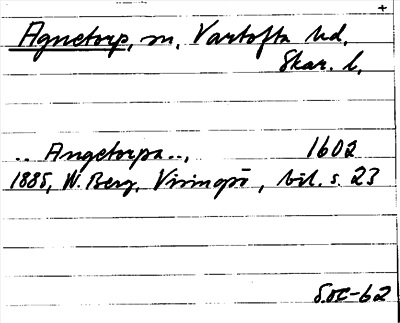 +
Agnetorp, sn, Vartofta hd,
Skar. l,
.. Angetorpa..,  1602
1885, W. Berg, Visingsö, bil. s. 23
SOC-62